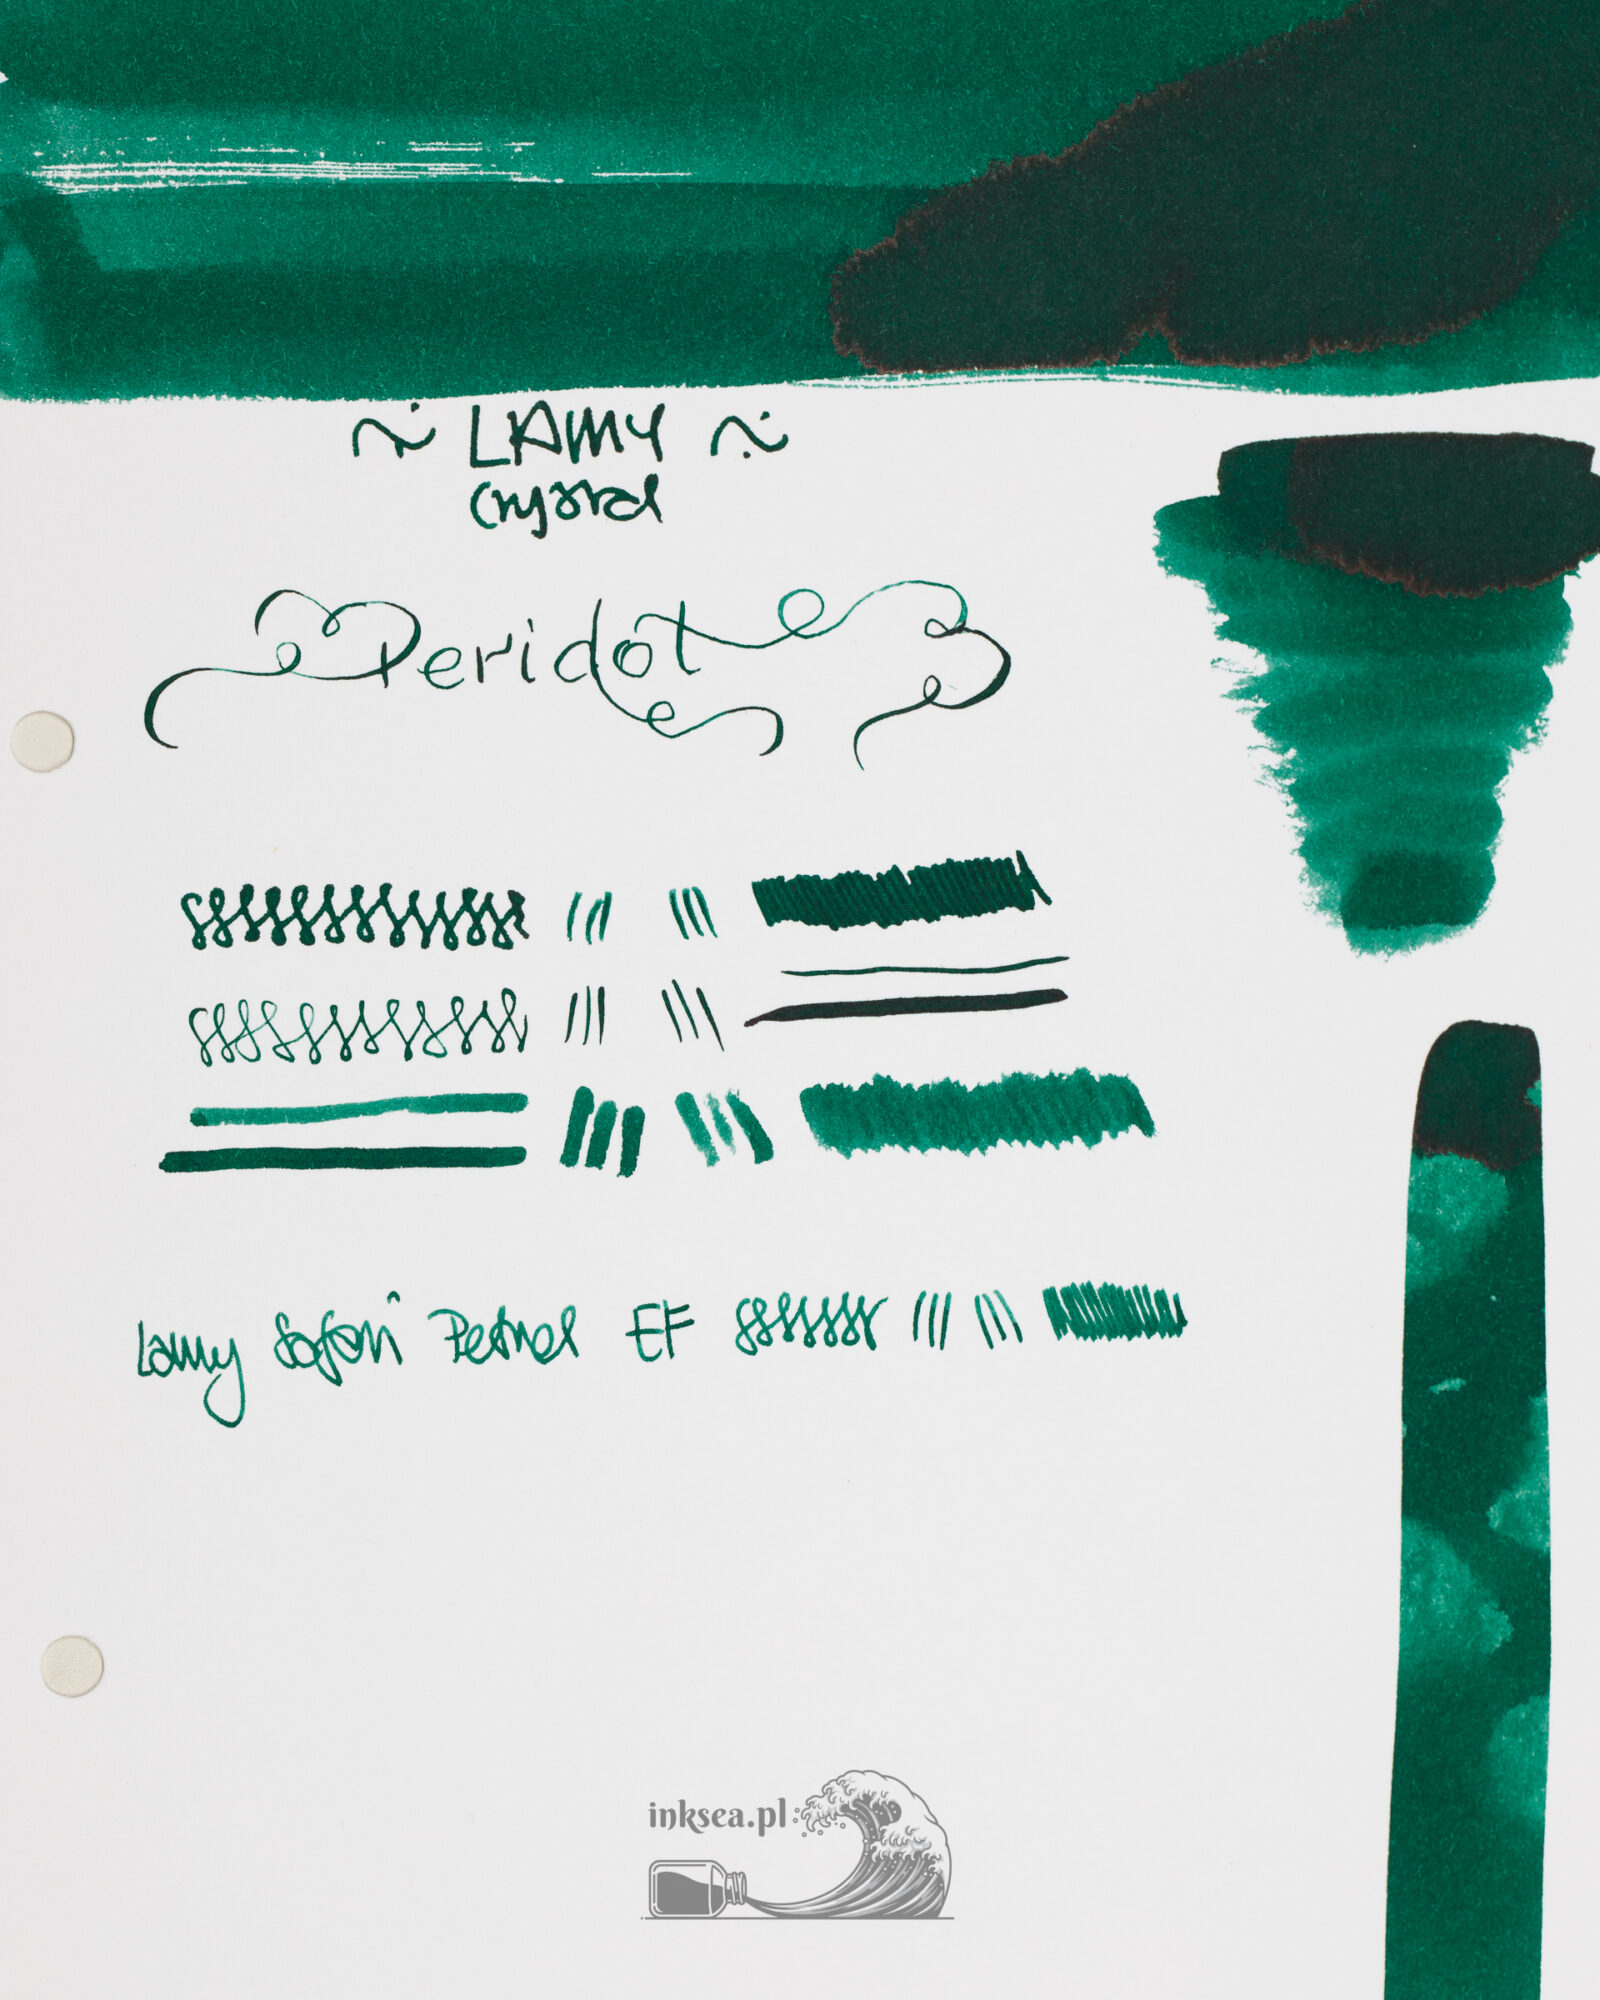 ~ LAMY ~
Crystal
Peridot
Lamy Safari Petrol EF
inksea.pl